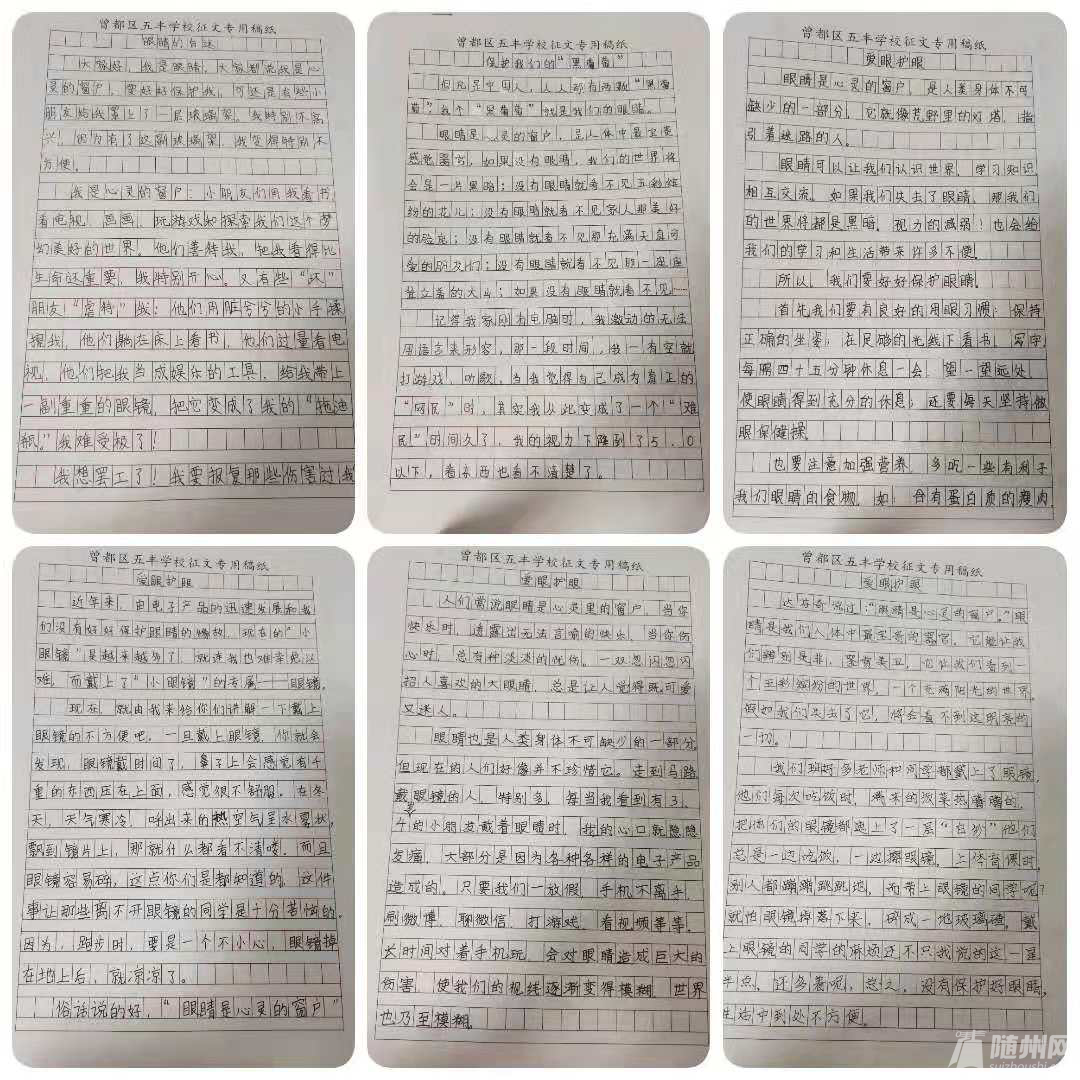 曾都区五丰学校征文专用稿纸
眼睛的自述
大家好，我是眼睛，大家都说我是心
灵的窗户，要好好保护我，可还是有些小
朋友给我罩上了一层玻璃架，我特别不高
兴！因为有了这副玻璃架，我觉得特别不
方便！
我是心灵的窗户：小朋友们用我看书，
看电视，画画，玩游戏和探索我们这个梦
幻美好的世界。他们善待我，把我看得比
生命还重要，我特别开心。又有些“坏”
朋友“虐待”我：他们用脏兮兮的小手揉
揉我，他们躺在床上看书，他们过量看电
视，他们把我当成娱乐的工具，给我带上
一副重重的眼镜，把它变成了我的“拖油
瓶。”我难受极了！
我想罢工了！我要报复那些伤害过我
曾都区五丰学校征文专用稿纸
保护我们的“黑葡萄”
但凡是中国人，人人都有两颗“黑葡
萄”，我个“黑葡萄”就是我们的眼睛。
眼睛是心灵的窗户，是人体中最宝贵
感觉器官，如果没有眼睛，我们的世界将
会是一片黑暗；没有眼睛就看不见五彩缤
纷的花儿；没有眼睛就看不见家人那美好
的脸庞；没有眼睛就看不见那充满天真可
爱的朋友们；没有眼睛就看不见那一座座
耸立着的大厦；如果没有眼睛就看不见……
记得我家刚有电脑时，我激动的无法
用语言来形容，那一段时间，我一有空就
打游戏，听歌，当我觉得自己成为真正的
“网民”时，其实我从此变成了一个“难
民”，时间久了，我的视力下降到了5．0
以下，看东西也看不清楚了。
曾都区五丰学校征文专用稿纸
爱眼护眼
眼睛是心灵的窗户，是人类身体不可
缺少的一部分，它就像荒野里的灯塔，指
引着迷路的人。
眼睛可以让我们认识世界，学习知识，
相互交流。如果我们失去了眼睛，那我们
的世界将都是黑暗。视力的减弱！也会给
我们的学习和生活带来许多不便。
所以，我们要好好保护眼睛。
首先我们要有良好的用眼习惯：保持
正确的坐姿；在足够的光线下看书、写字；
每隔四十五分钟休息一会，望一望远处，
使眼睛得到充分的休息；还要每天坚持做
眼保健操。
也要注意加强营养，多吃一些有利于
我们眼睛的食物，如：含有蛋白质的瘦肉、
曾都区五丰学校征文专用稿纸
爱眼护眼
近年来，由电子产品的迅速发展和我
们没有好好保护眼睛的缘故，现在的“小
眼镜”是越来越多了，就连我也难幸免以
难，而戴上了“小眼镜”的专属——眼镜。
现在，就由我来给你们讲解一下戴上
眼镜的不方便吧。一旦戴上眼镜，你就会
发现，眼镜戴时间了，鼻子上会感觉有千
重的东西压在上面，感觉很不舒服。在冬
天，天气寒冷，呼出来的热空气呈水雾状，
飘到镜片上，那就什么都看不清喽。而且
眼镜容易碎，这点你们是都知道的，这件
事让那些离不开眼镜的同学是十分苦恼的。
因为，跑步时，要是一个不小心，眼镜掉
在地上后，就凉凉了。
俗话说的好，“眼睛是心灵的窗户”
曾都区五丰学校征文专用稿纸
爱眼护眼
人们常说眼睛是心灵里的窗户。当你
快乐时，透露出无法言喻的快乐，当你伤
心时，总有种淡淡的忧伤。一双忽闪忽闪
招人喜欢的大眼睛，总是让人觉得既可爱
又迷人。
眼睛也是人类身体不可缺少的一部分，
但现在的人们好像并不珍惜它。走到马路，
戴眼镜的人，特别多，每当我看到有3、
4的小朋友戴着眼睛时，我的心口就隐隐
发痛，大部分是因为各种各样的电子产品
造成的。只要我们一放假，手机不离手，
刷微博，聊微信，打游戏，看视频等等。
长时间对着手机玩，会对眼睛造成巨大的
伤害，使我们的视线逐渐变得模糊，世界
也乃至模糊。
曾都区五丰学校征文专用稿纸
爱护眼
达芬奇说过：“眼睛是心灵的窗户。”眼
睛是我们人体中最宝贵的器官，它能让我
们辨别是非，鉴赏美丑，它让我们看到一
个五彩缤纷的世界，一个充满阳光的世界。
假如我们失去了它，将会看不到这明亮的
一切。
我们班好多老师和同学都戴上了眼镜，
他们每次吃饭时，端来的饭菜热着腾的，
把他们的眼镜都染上了一层“白纱”他们
总是一边吃饭，一边擦眼镜。上体育课时，
别人都蹦蹦跳跳地，而带上眼镜的同学呢？
就怕眼镜掉落下来，碎成一地玻璃碴，戴
上眼镜的同学的麻烦还不只我说的这一星
半点，还多着呢，总之，没有保护好眼睛，
生活中到处不方便。
随州网
suizhoushi.com